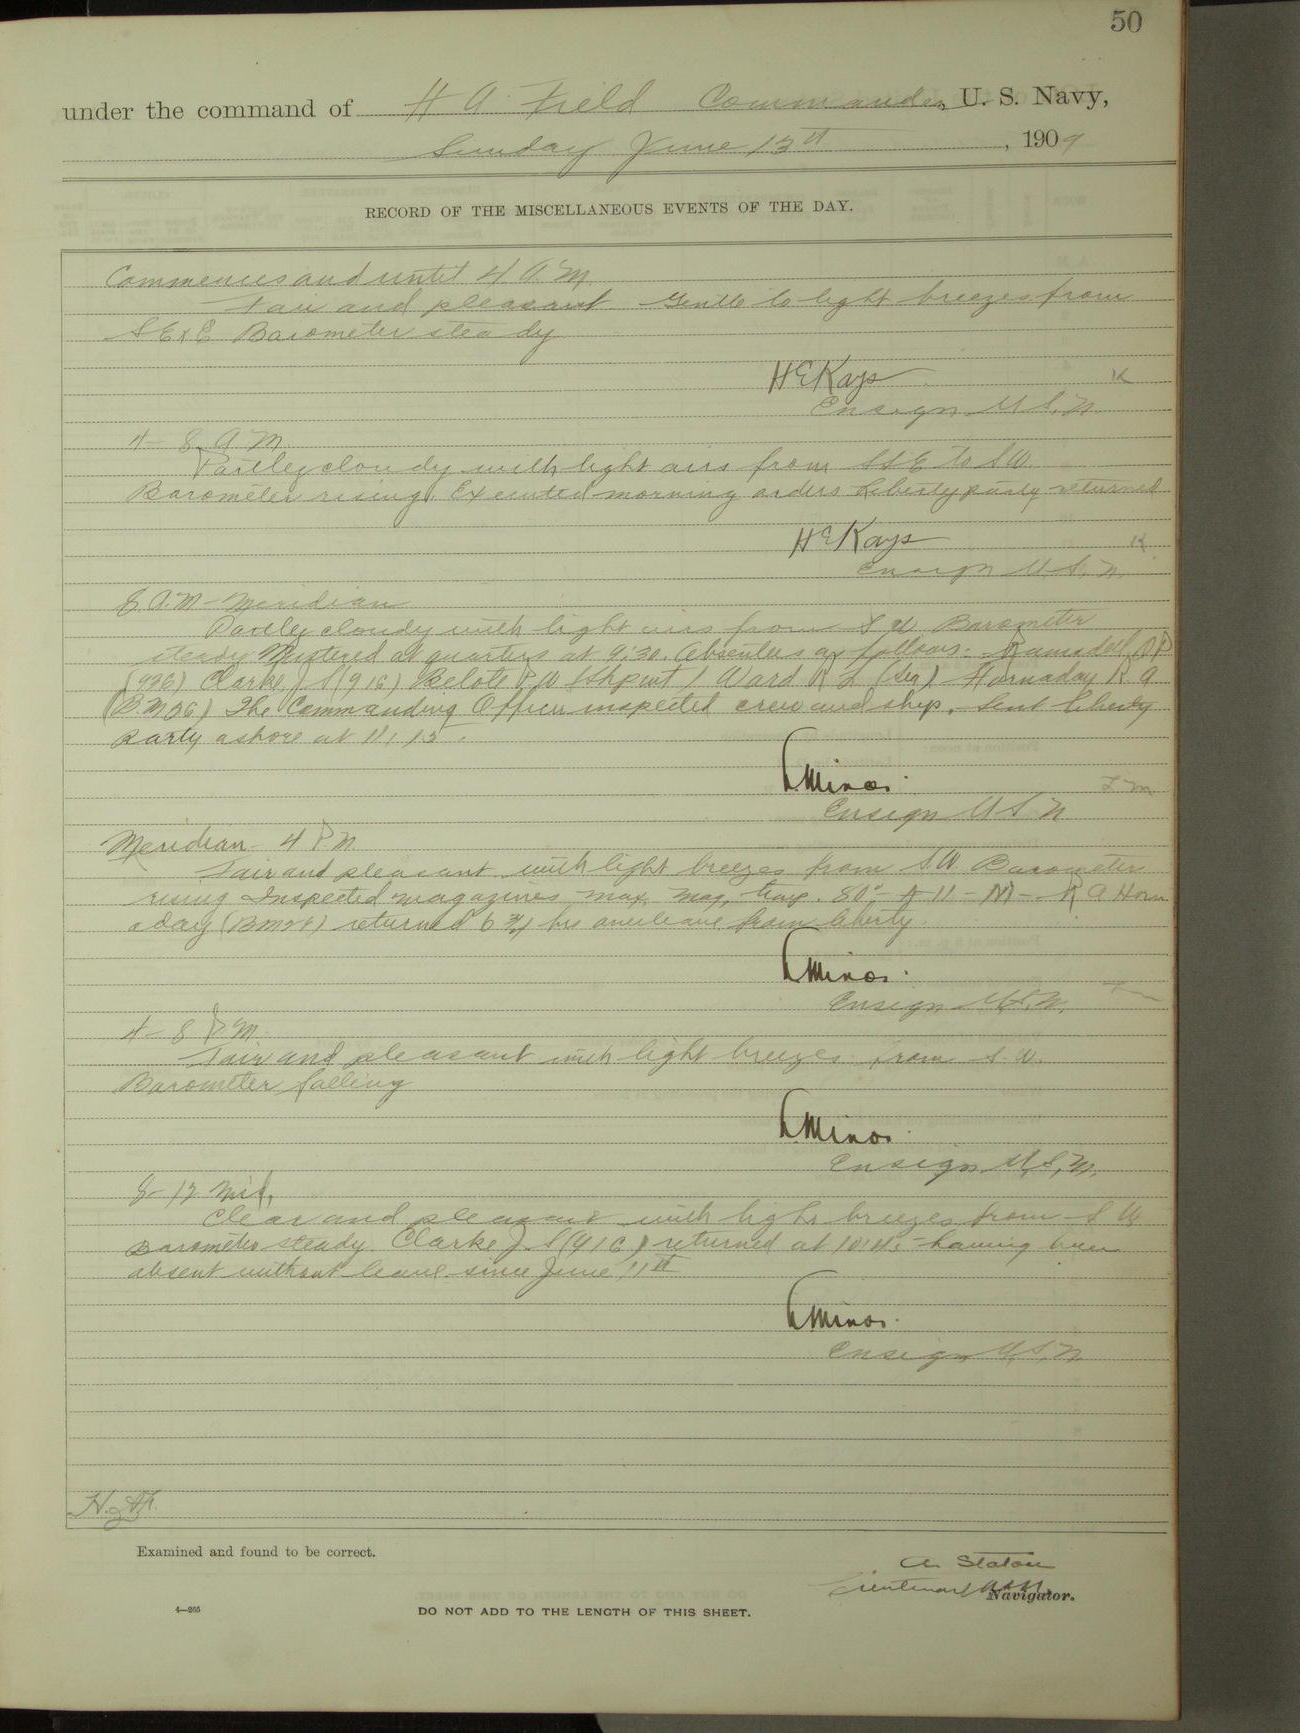 50
under the command of H A Field Commander, U. S. Navy,
Sunday June 13th, 1909
RECORD OF THE MISCELLANEOUS EVENTS OF THE DAY.
Commences and until 4 A.M.
Fair and pleasant Gentle to light breezes from
SExE Barometer steady
H E Kays
K
Ensign U.S.N.
4 - 8 A M
Partley cloudy with light airs from SSE to SW.
Barometer rising. Executed morning orders Liberty party returned
H E Kays
K
Ensign U.S.N.
8 A.M - Meridian
Partley cloudy with light airs from S W Barometer
steady Mustered at quarters at 9:30. Absentees as follows:
Clarke J S (916) Ward R L (Sea) Hornaday R A
(B.M26) The Commanding Officer inspected crew and ship. Sent liberty
Party ashore at 11:15.
Minor
Ensign U S N
Meridian - 4 P M
Fair and pleasant with light breezes from S W Barometer
rising Inspected magazines, max. mag. temp. 80° - A-11-M - R A Horn
aday (BM26) returned 6 3/4 hrs overleave from liberty.
Minor
Ensign U.S.N.
4 - 8 P M
Fair and pleasant with light breezes from S.W.
Barometer falling
Minor
Ensign U.S.N.
8 - 12 Mid,
Clear and pleasant with light breezes from S W
Barometer steady. Clarke J. S (916) returned at having been
absent without leave since June 11th
Minor
Ensign U.S.N.
H.A.F.
Examined and found to be correct.
A. Staton
Lieutenant U.S.N.
Navigator.
4—265
DO NOT ADD TO THE LENGTH OF THIS SHEET.